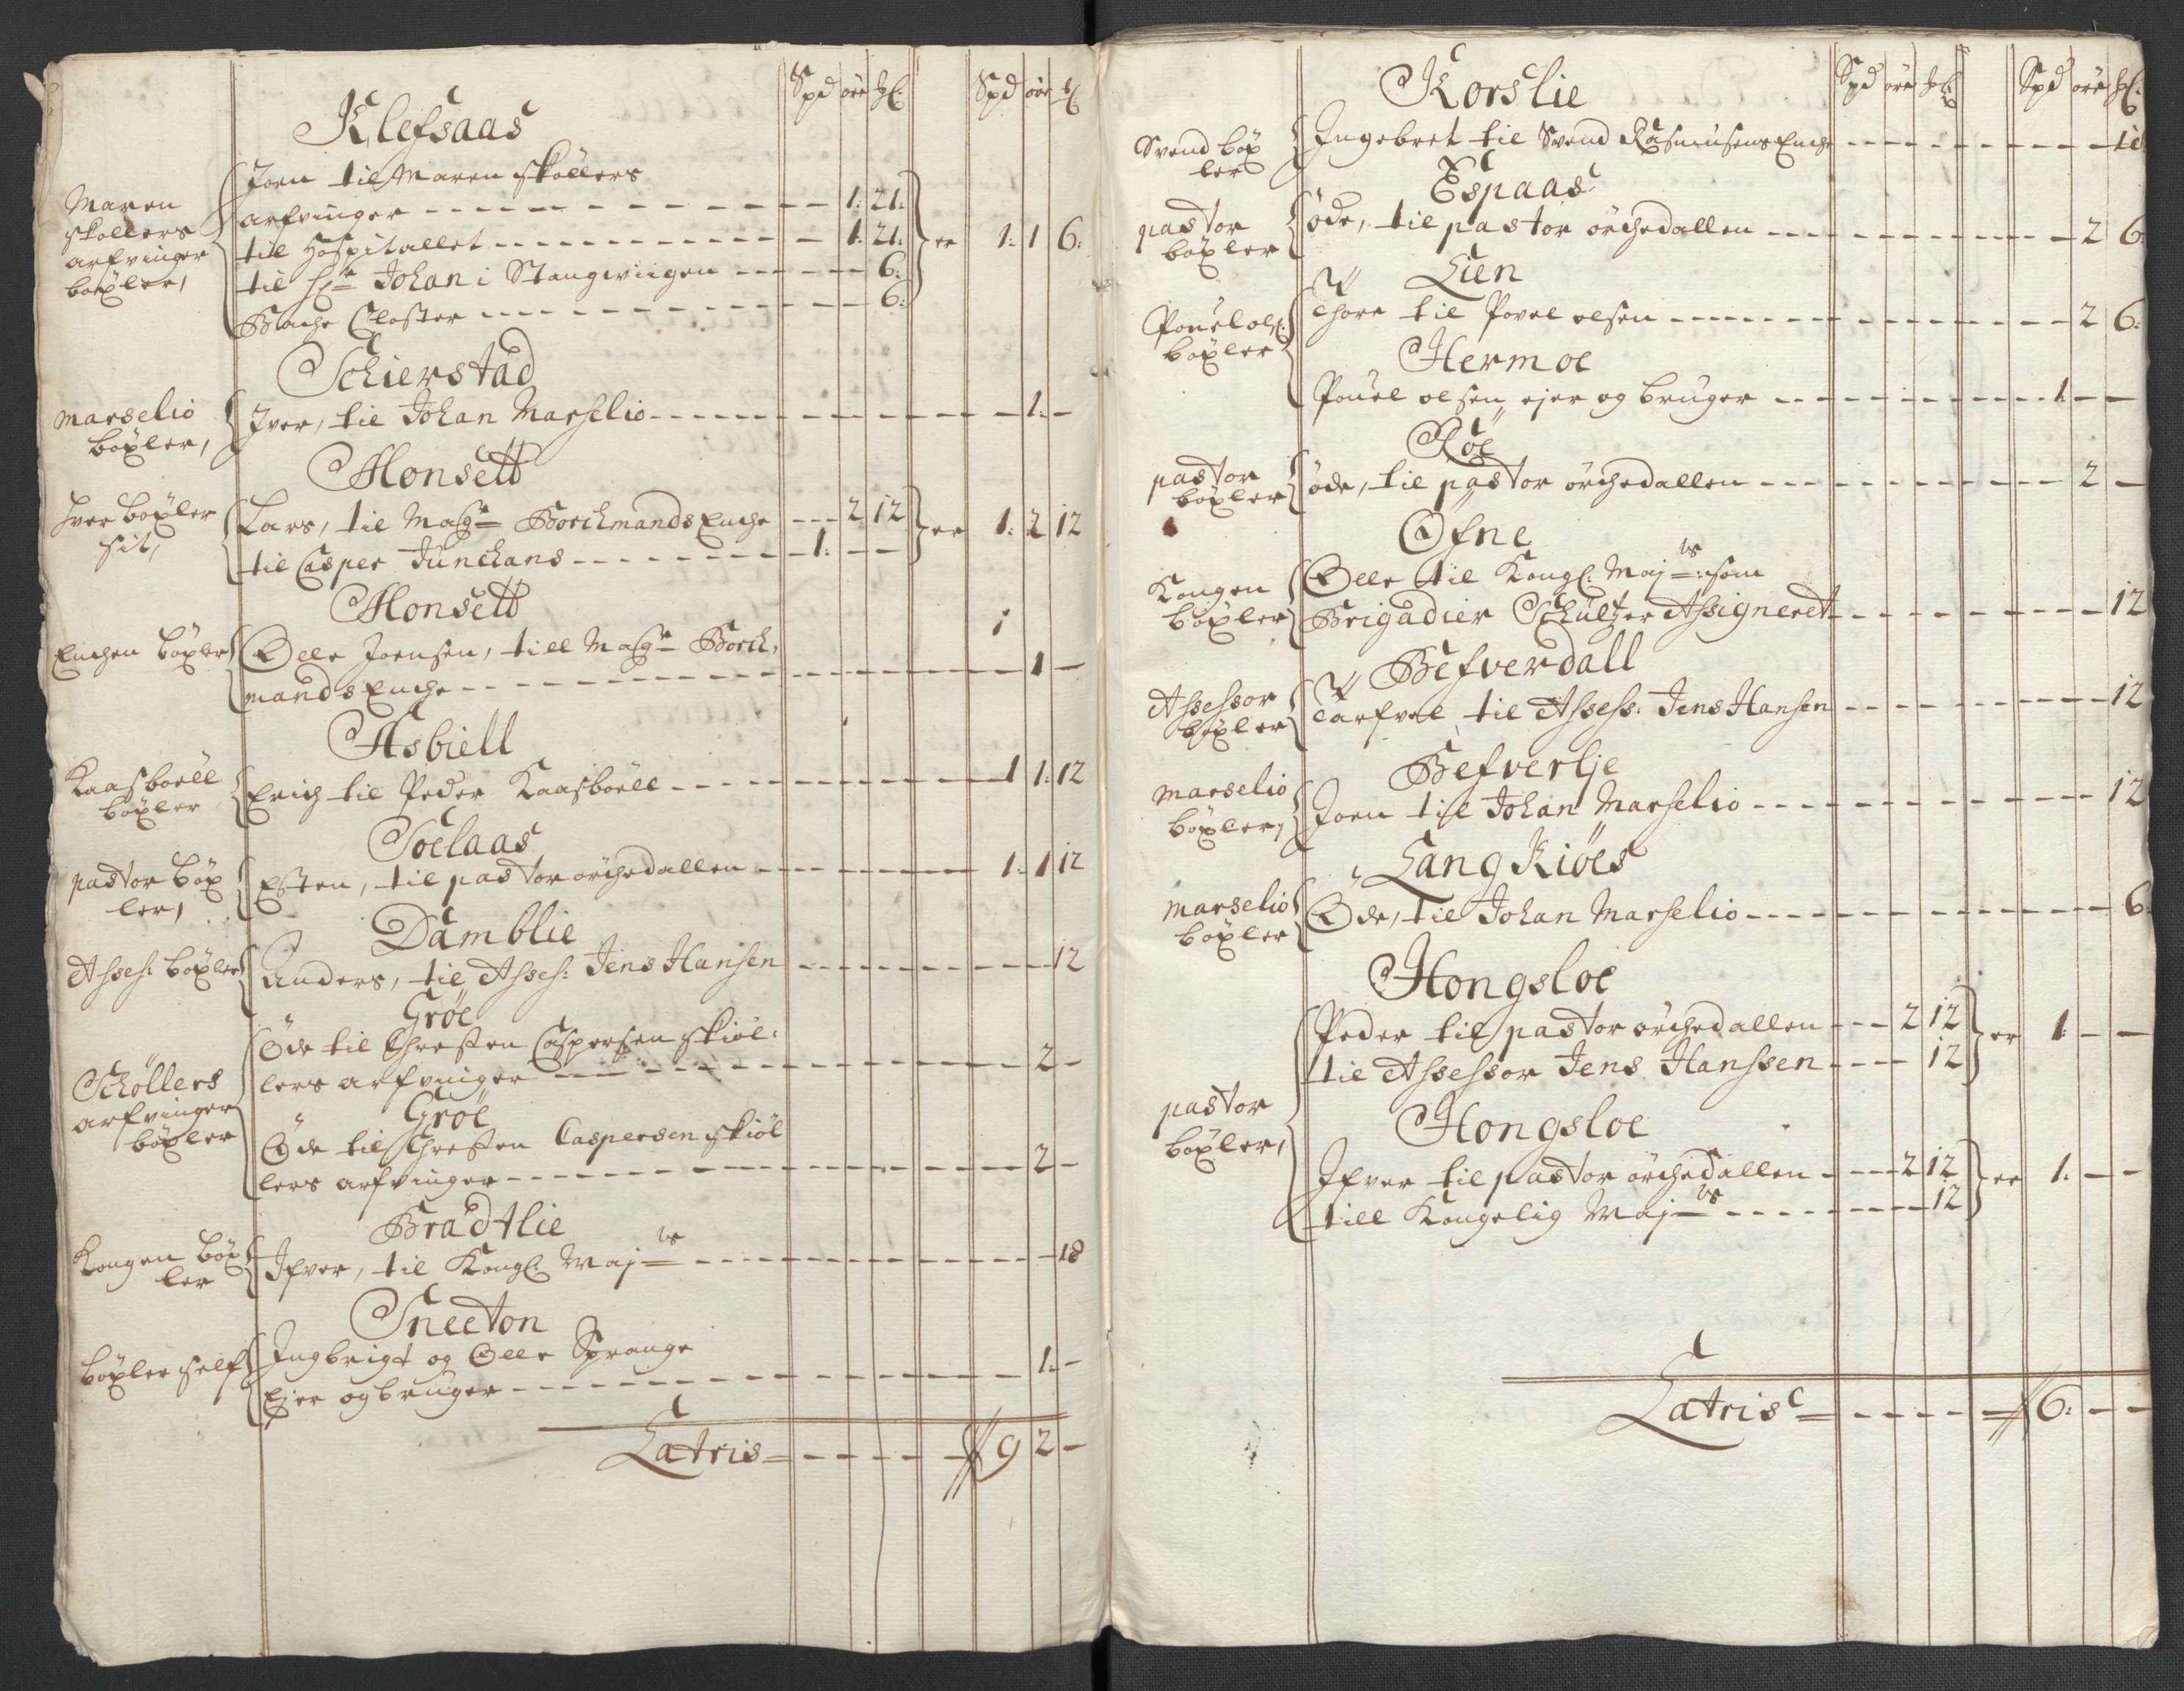 Spd øre ₰ Spd øre ₰
Klefsaas
Maren
skøllers
arfvinger
bøxler,
Joen til Maren skøllers
arfvinger - - - 1: 21:
til Hospitallet - - - 1: 21: er 1: 1 6:
til Hr Johan i Stangwiigen - - - 6:
Bache Closter - - - 6:
Schierstad
Marselio
bøxler,
Iver, til Johan Marselio - - - 1: -
Honsett
Hver bøxler
sit,
Lars, til Magr Borchmands Enche - - - 2 12 er 1: 2 12
til Casper Junchans - - - 1: - -
Honsett
Enchen bøxler
Olle Joensen, till Magr Borch,
mands Enche - - - 1 -
Asbiell
Kaasboell
bøxler
Erich til Peder Kaasboell - - - 1 1: 12
Soelaas
pastor bøx
ler,
Esten, til pastor örchedallen - - - 1: 1 12
Damblie
Asses: bøxler
Anders, til Asses: Jens Hansen - - - 12
Gröe
Schøllers
arfvinger
bøxler
Øde til Chresten Caspersen skiöl:
lers arfvinger - - - 2 -
Gröe
Øde til Chresten Caspersen skiöl
lers arfvinger - - - 2 -
Bradtlie
Kongen bøx
ler
Ifver, til Kongl: Majts - - - 18
Sneeton
bøxler self
Ingbrigt og Olle Sprange
Ejer og bruger - - - 1: -
Latris - - - 9 2 -
Spd øre ₰ Spd øre ₰
Korslie
Svend bøx
ler
Ingebret til Svend Rasmusens Enche - - - 18
Espaas
pastor
bøxler
øde, til pastor örchedallen - - - 2 6:
Lien
Pouel ols:
bøxler
Thore til Povel olsen - - - 2 6:
Hermoe
Pouel olsen ejer og bruger - - - 1: - -
Röe
pastor
bøxler
øde, til pastor örchedallen - - - 2 -
Öfne
Kongen
bøxler
Olle til Kongl: Majts: som
Brigadier Schultz er Assigneret - - - 12
Befverdall
Assessor
bøxler
Tarfvel til Assess: Jens Hansen - - - 12
Befverlje
Marselio
bøxler,
Joen til Johan Marselio - - - 12
Lang Kiöes
Marselio
bøxler
Øde, til Johan Marselio - - - 6
Hongsloe
pastor
bøxler,
Peder til pastor örchedallen - - - 2 12 er 1: - -
til Assessor Jens Hanssen - - - 12
Hongsloe
Ifver til pastor örchedallen - - - 2 12 er 1: - -
till Kongelig Majts - - - 12
Latris - - - 6: - -